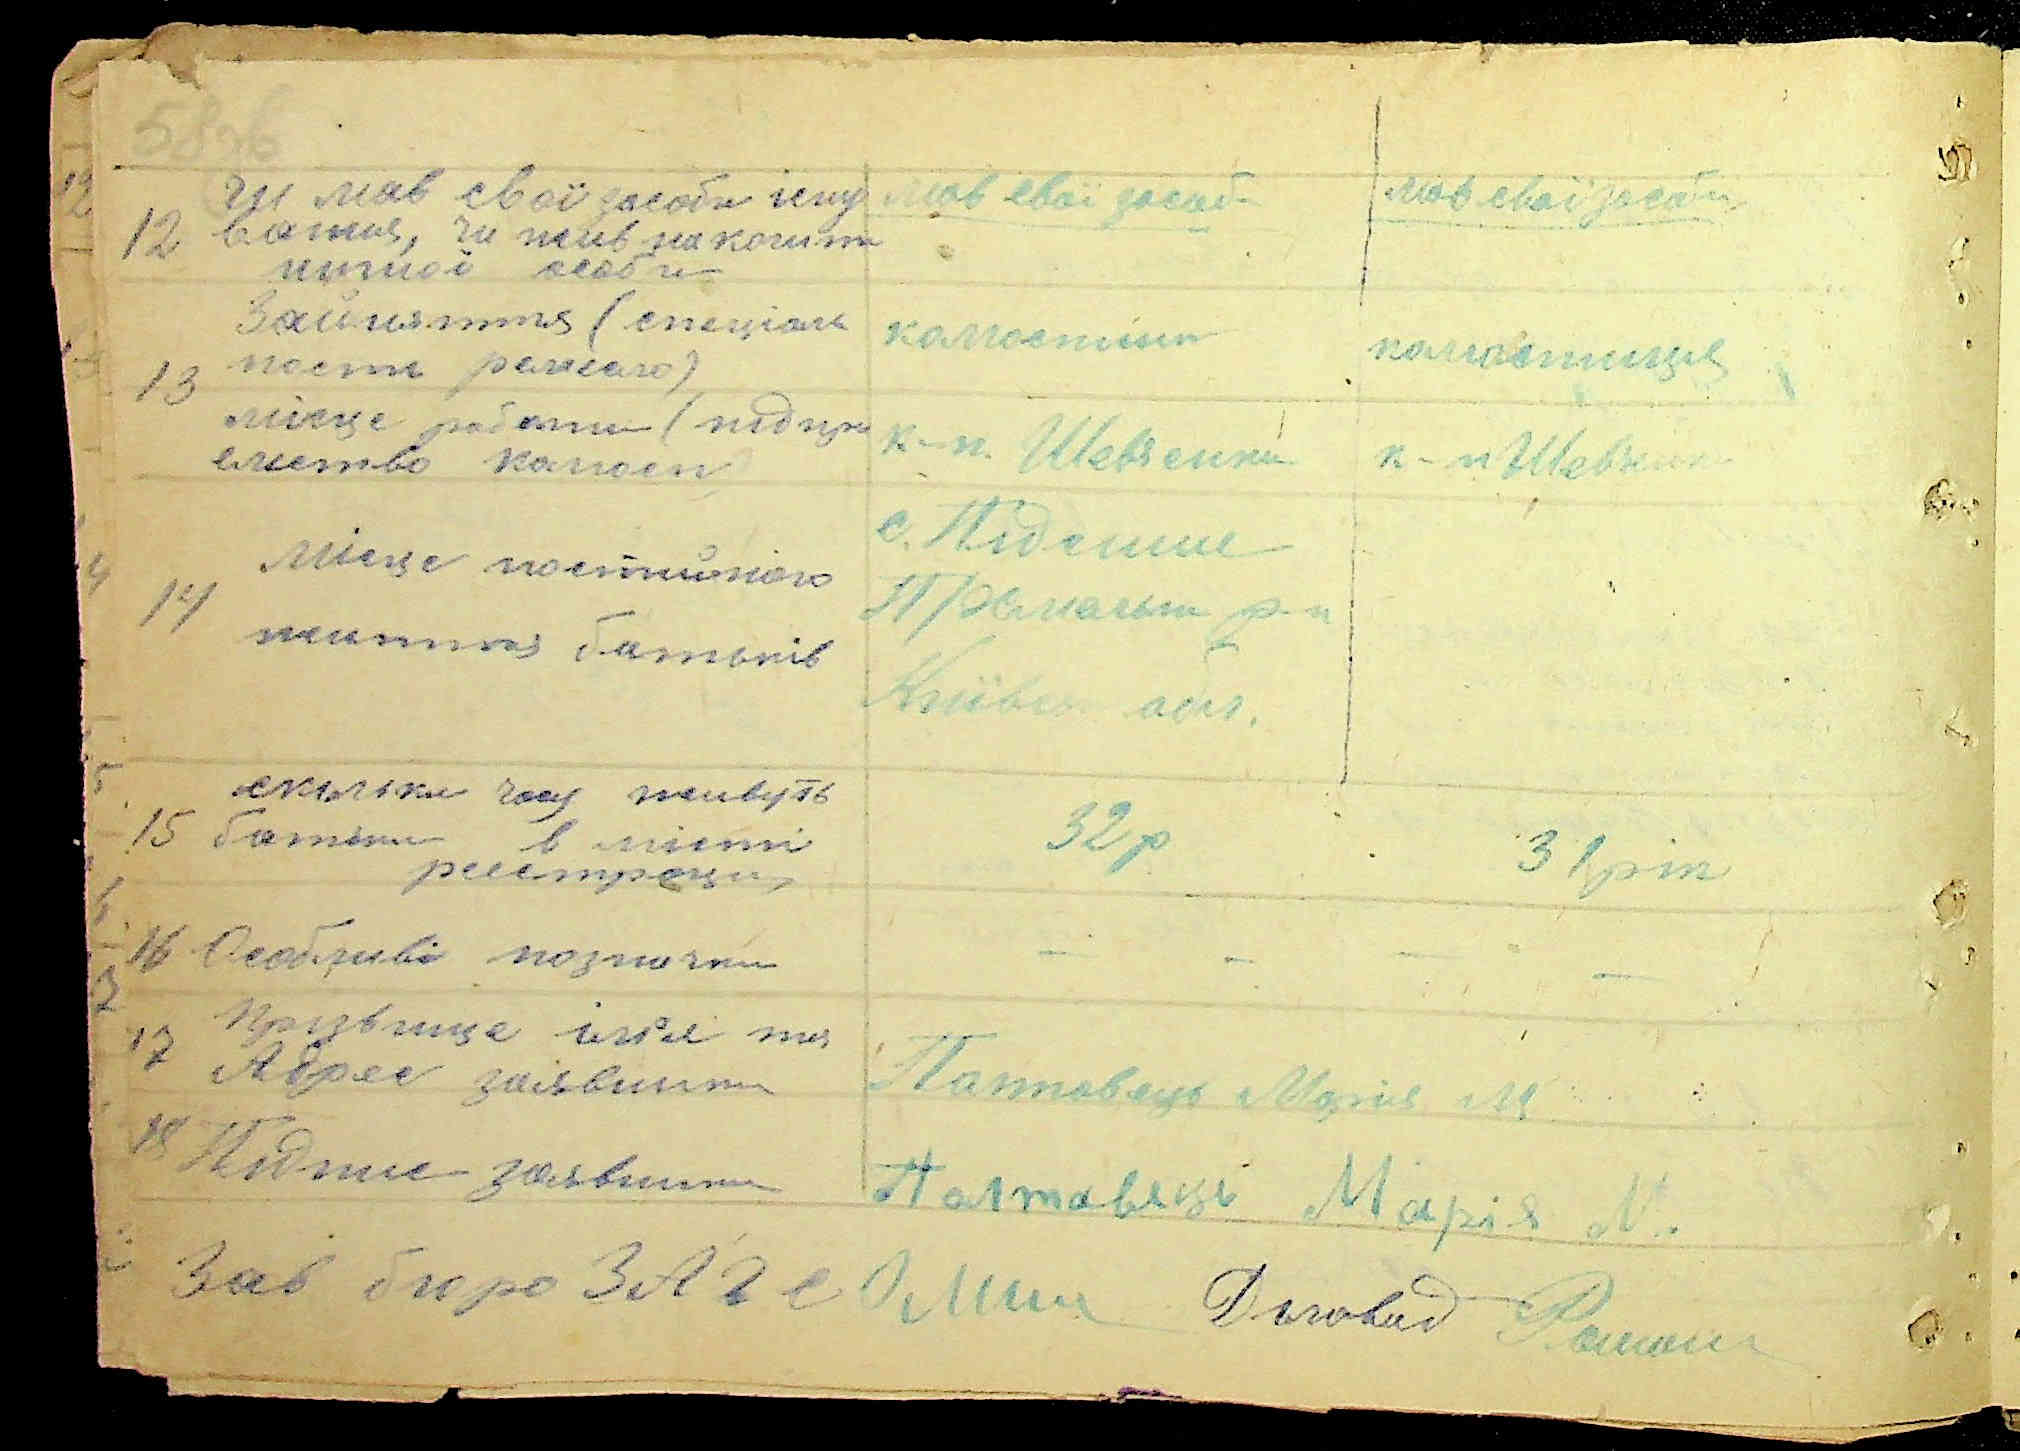 58зв
12 чи мав свої засоби існу
вання, чи жив на кошти
иншої особи
мав свої засоб
мав свої засоби
13 Заиняття (спеціаль
ность ремесло)
колгоспник
колгоспниця
місце роботи (підпри
ємство колгосп)
к-п. Шевченка
к-п Шевченка
14 Місце постійного
життя батьків
с.
р-н
Київськ обл.
15 скильки часу живуть
батьки в місті
реестрации
32 р
31 рік
16 Особливі позначки
— — — —
17 Призвище імъя та
Адрес заявника
Полтавець Марія М
18 Підпис заявника
Полтавець Марія М.
Зав бюро ЗАГС